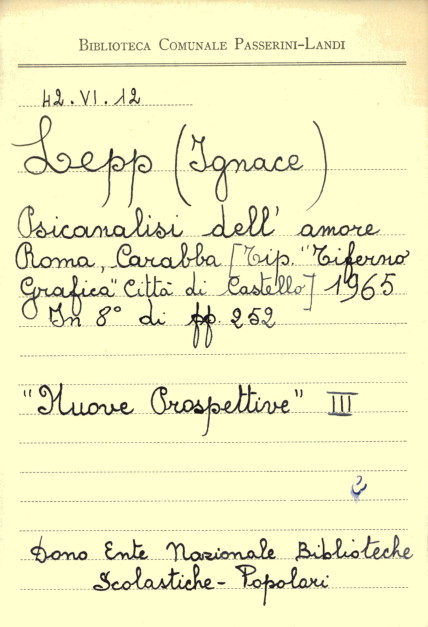 BIBLIOTECA COMUNALE PASSERINI-LANDI
42.VI.12
Lepp (Ignace)
Psicanalisi dell' amore
Roma, Carabba [Tip. "Tiferno
Grafica" Città di Castello] 1965
In 8° di pp. 252
"Nuove Prospettive" III
Dono Ente Nazionale Biblioteche
Scolastiche-Popolari